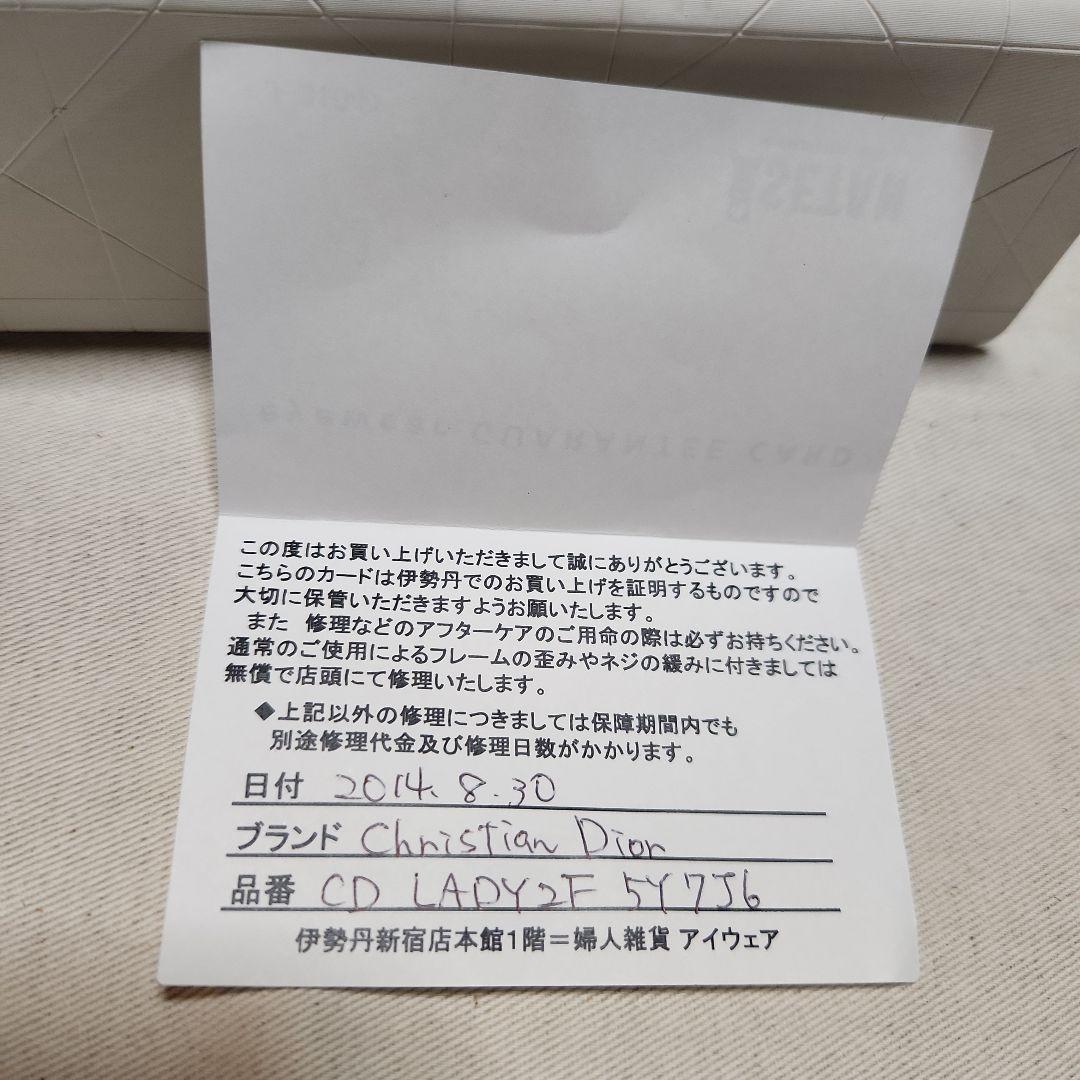 ISETAN
eyewear GUARANTEE CARD
この度はお買い上げいただきまして誠にありがとうございます。
こちらのカードは伊勢丹でのお買い上げを証明するものですので
大切に保管いただきますようお願いいたします。
また 修理などのアフターケアのご用命の際は必ずお持ちください。
通常のご使用によるフレームの歪みやネジの緩みに付きましては
無償で店頭にて修理いたします。
◆上記以外の修理につきましては保障期間内でも
別途修理代金及び修理日数がかかります。
日付 2014.8.30
ブランド Christian Dior
品番 CD LADY2F 5Y7J6
伊勢丹新宿店本館1階=婦人雑貨 アイウェア